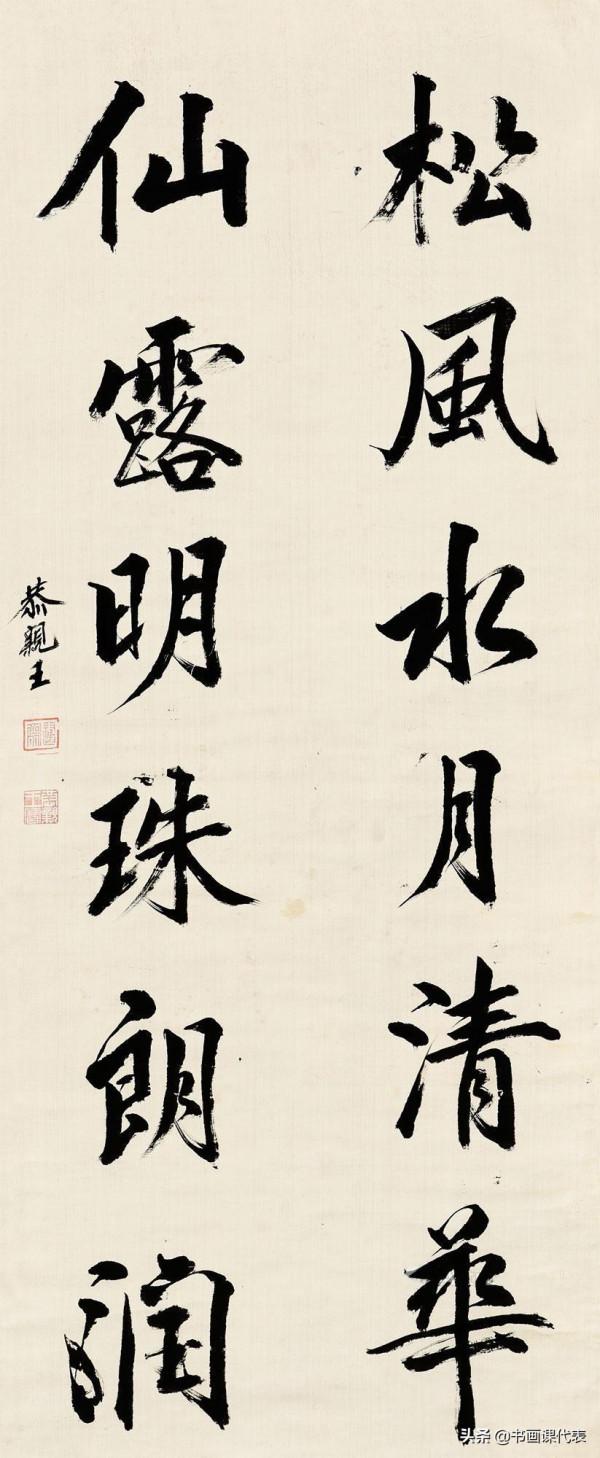 松風水月清華
仙露明珠朗潤
恭親王
头条 @书画课代表